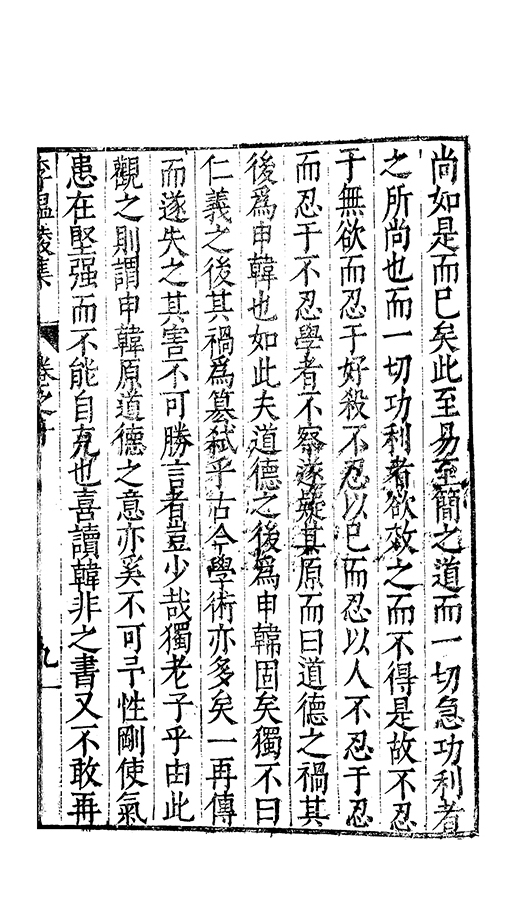 尚如是而已矣此至易至簡之道而一切急功利者
之所尚也而一切功利者欲效之而不得是故不忍
于無欲而忍于好殺不忍以已而忍以人不忍于忍
而忍于不忍學者不察遂疑其原而曰道德之禍其
後爲申韓也如此夫道德之後爲申韓固矣獨不曰
仁義之後其禍爲篡弒乎古今學術亦多矣一再傳
而遂失之其害不可勝言者豈少哉獨老子乎由此
觀之則謂申韓原道德之意亦奚不可予性剛使氣
患在堅强而不能自克也喜讀韓非之書又不敢再
李溫陵集
卷之十
九